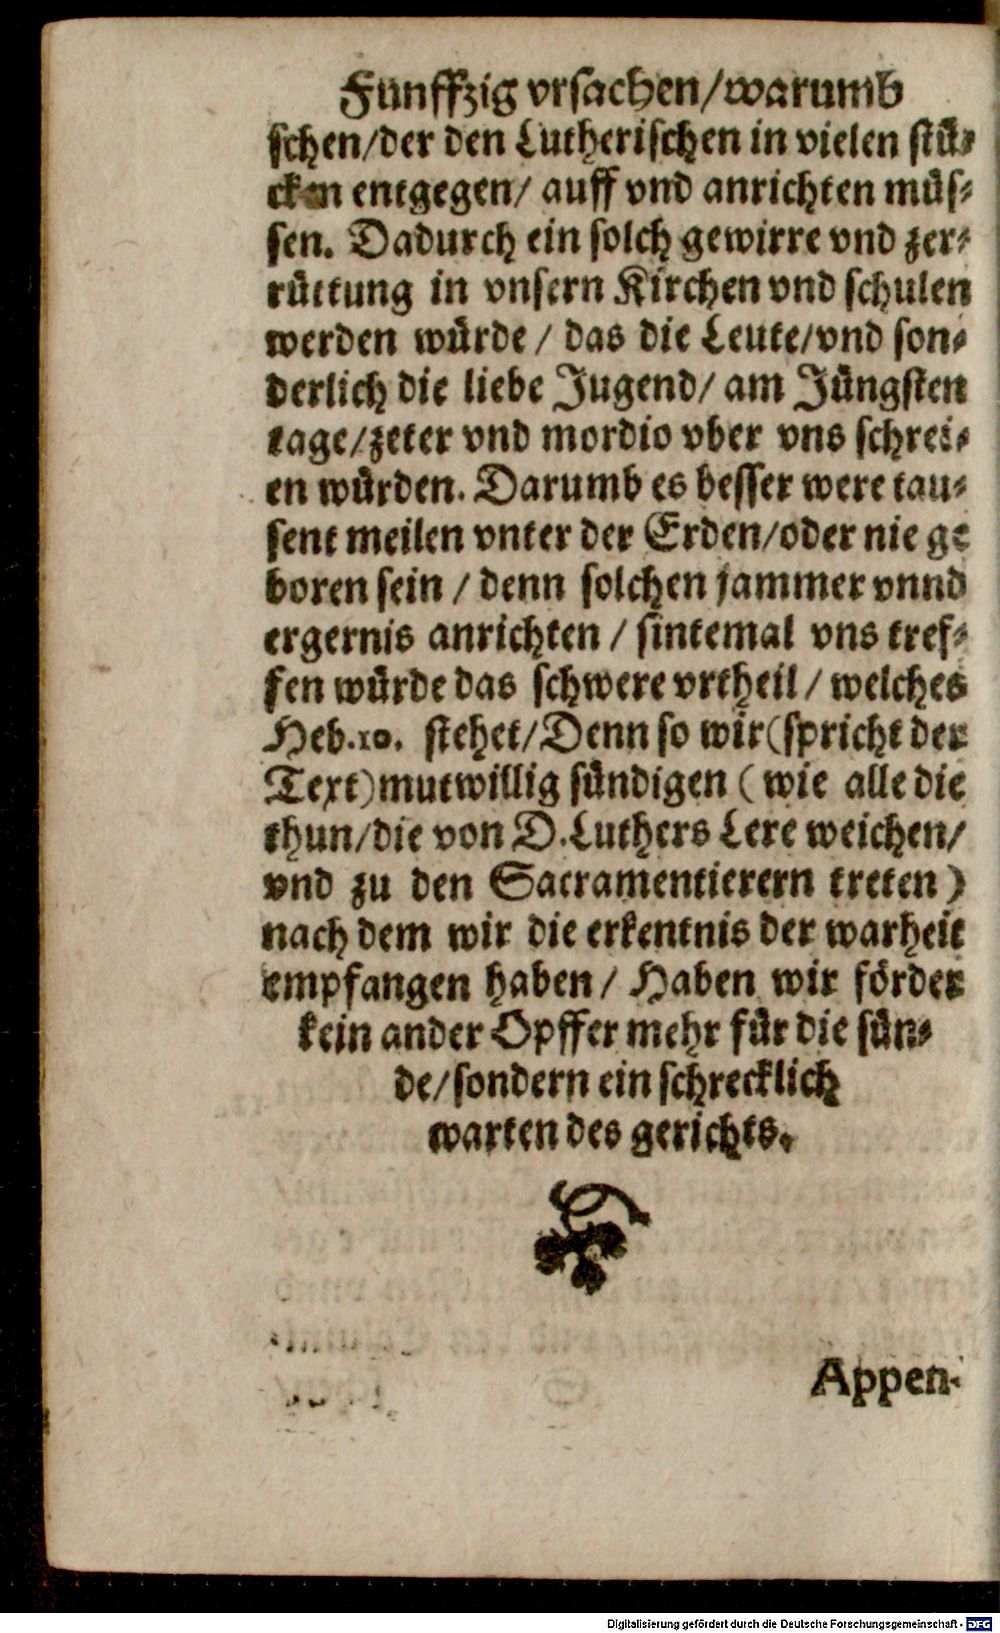 Fünffzig vrsachen/warumb
schen/der den Lutherischen in vielen stü-
cken entgegen/ auff vnd anrichten müs-
sen. Dadurch ein solch gewirre vnd zer-
rüttung in vnsern Kirchen vnd schulen
werden würde / das die Leute/vnd son-
derlich die liebe Jugend/ am Jüngsten
tage/zeter vnd mordio vber vns schrei-
en würden. Darumb es besser were tau-
sent meilen vnter der Erden/oder nie ge
boren sein / denn solchen jammer vnnd
ergernis anrichten / sintemal vns tref-
fen würde das schwere vrtheil / welches
Heb.10. stehet/Denn so wir(spricht der
Text)mutwillig sündigen ( wie alle die
thun/die von D.Luthers Lere weichen/
vnd zu den Sacramentierern treten )
nach dem wir die erkentnis der warheit
empfangen haben/ Haben wir förder
kein ander Opffer mehr für die sün-
de/sondern ein schrecklich
warten des gerichts.
Appen-
Digitalisierung gefördert durch die Deutsche Forschungsgemeinschaft - DFG